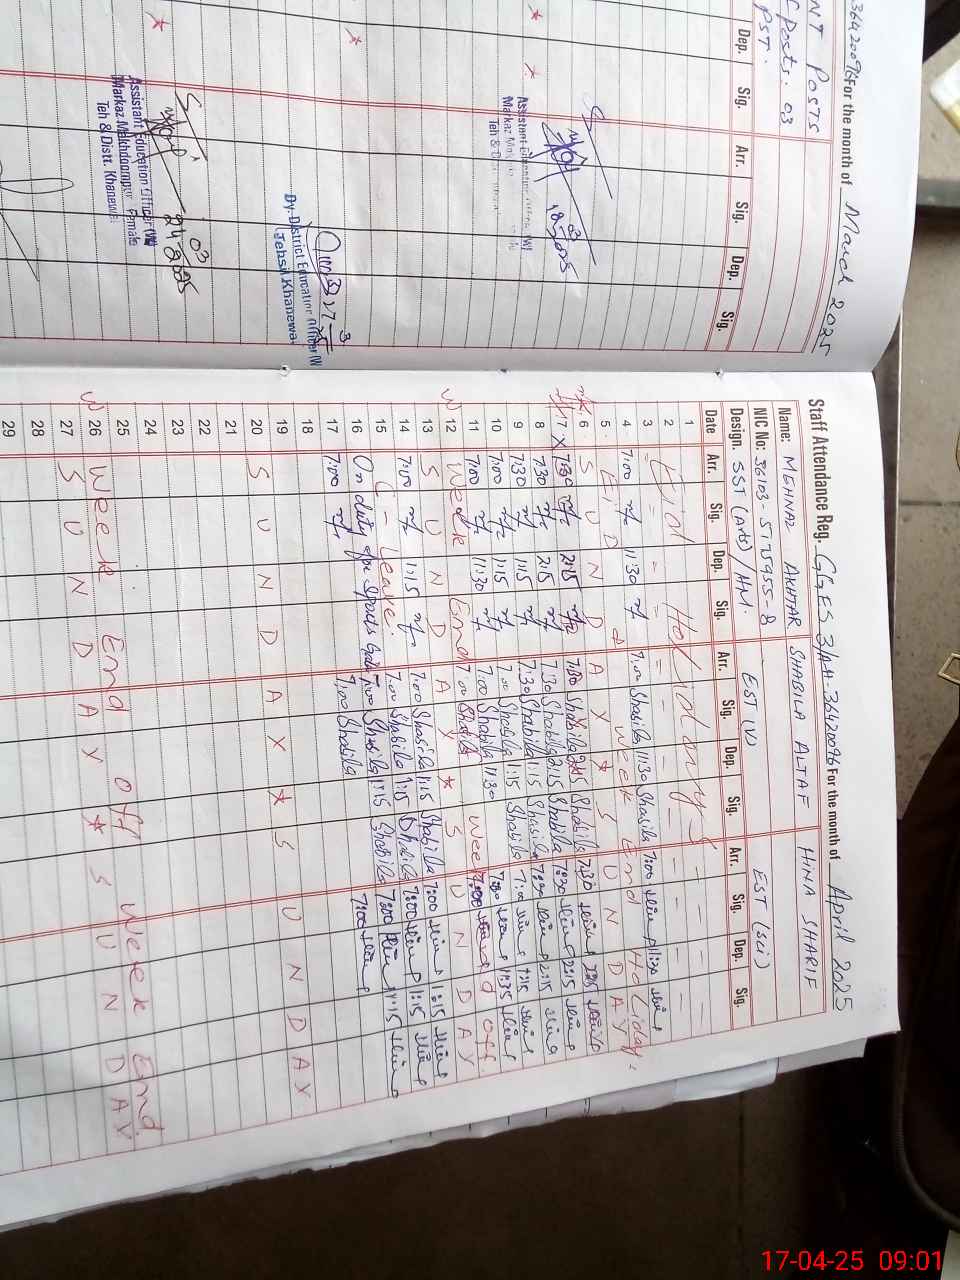 36420096 For the month of March 2025
NT Posts
Posts. 03
PST.
Dep. Sig. Arr. Sig. Dep. Sig.
Assistant Education Officer (W)
18-3-2025
Assistant Education Officer (W)
Markaz Makhdoompur Female
Teh & Distt. Khanewal
24 03 2025
Dy. District Education Officer (W)
Tehsil Khanewal
27 3
Staff Attendance Reg. GGES 3/AH-36420096 For the month of April 2025
Name: MEHNAZ AKHTAR SHABILA ALTAF HINA SHARIF
NIC No: 36103-5725955-8 EST (V) EST (Sci)
Design. SST (Arts)/HM.
Date Arr. Sig. Dep. Sig. Arr. Sig. Dep. Sig. Arr. Sig. Dep. Sig.
1
2 Eid Holidays
3
4 7:00 11:30 7:00 Shabila 11:30 Shabila 7:00 Hina 11:30 Hina
5 Eid Week End Holiday
6 S U N D A Y * S U N D A Y
7 7:30 2:15 7:30 Shabila 2:15 Shabila 7:30 Hina 2:15 Hina
8 7:30 2:15 7:30 Shabila 2:15 Shabila 7:30 Hina 2:15 Hina
9 7:30 1:15 7:30 Shabila 1:15 Shabila 7:30 Hina 1:15 Hina
10 7:00 1:15 7:00 Shabila 1:15 Shabila 7:00 Hina 1:15 Hina
11 7:00 11:30 7:00 Shabila 11:30 Hina 11:35 Hina
12 Week End Week off
13 S U N D A Y * S U N D A Y
14 7:00 1:15 7:00 Shabila 1:15 Shabila 7:00 Hina 1:15 Hina
15 C - Leave. 7:00 Shabila 1:15 Shabila 7:00 Hina 1:15 Hina
16 On duty for Sports 7:00 Shabila 1:15 Shabila 7:00 Hina 1:15 Hina
17 7:00 7:00 Shabila 7:00 Hina
18
19
20 S U N D A Y * S U N D A Y
21
22
23
24
25
26 Week End off Week End
27 S U N D A Y * S U N D A Y
28
29
17-04-25 09:01